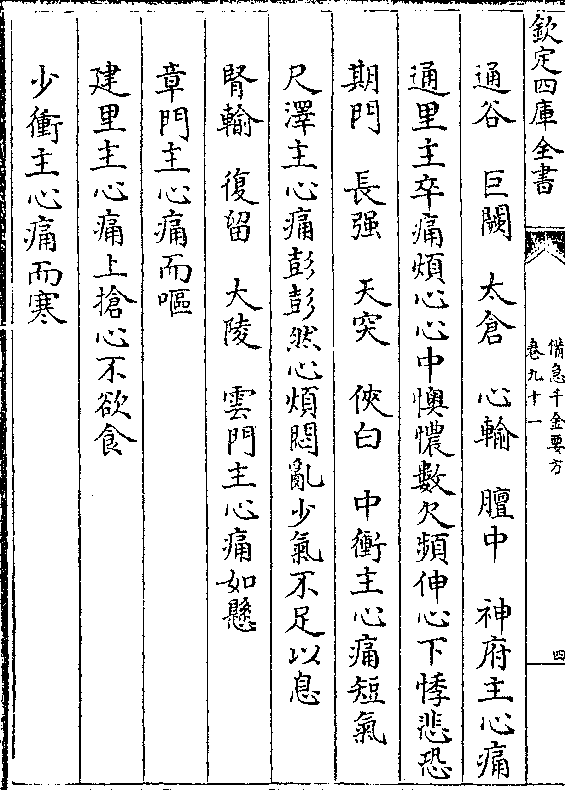 欽定四庫全書
備急千金要方
卷九十一
四
通谷 巨闕 太倉 心輸 膻中 神府主心痛
通里主卒痛煩心心中懊憹數欠頻伸心下悸悲恐
期門 長强 天突 俠白 中衝主心痛短氣
尺澤主心痛彭彭然心煩悶亂少氣不足以息
腎輸 復留 大陵 雲門主心痛如懸
章門主心痛而嘔
建里主心痛上搶心不欲食
少衝主心痛而寒